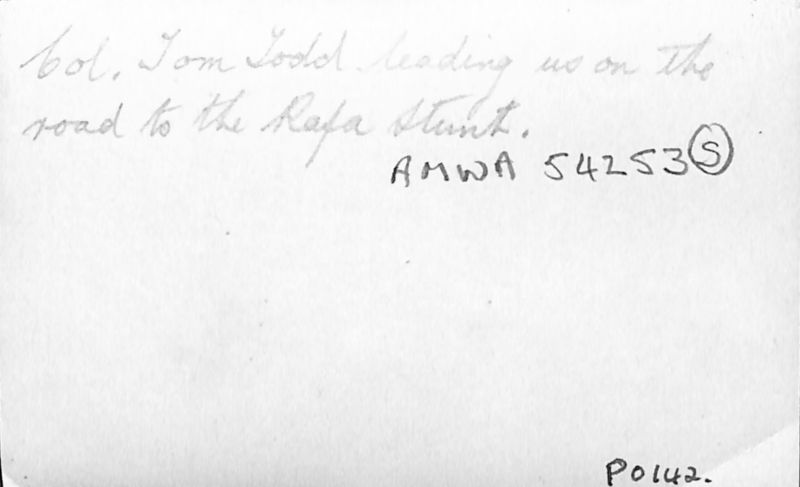 Col. Tom Todd leading us on the
road to the Rafa Stunt.
AMWA 54253 S
P0142.